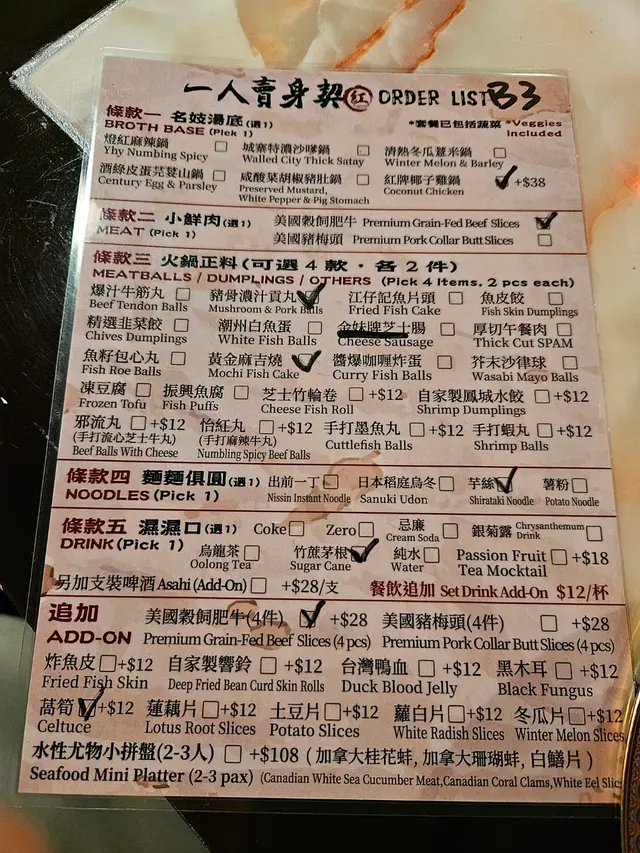 一人賣身契 紅 ORDER LIST B3
條款一 名妓湯底(選1)
BROTH BASE (Pick 1)
*套餐已包括蔬菜 *Veggies Included
燈紅麻辣鍋 城寨特濃沙嗲鍋 清熱冬瓜薏米鍋
Yhy Numbing Spicy Walled City Thick Satay Winter Melon & Barley
酒綠皮蛋芫荽山鍋 咸酸菜胡椒豬肚鍋 紅牌椰子雞鍋 +$38
Century Egg & Parsley Preserved Mustard, White Pepper & Pig Stomach Coconut Chicken
條款二 小鮮肉(選1) 美國穀飼肥牛 Premium Grain-Fed Beef Slices
MEAT (Pick 1) 美國豬梅頭 Premium Pork Collar Butt Slices
條款三 火鍋正料(可選4款・各2件)
MEATBALLS / DUMPLINGS / OTHERS (Pick 4 Items, 2 pcs each)
爆汁牛筋丸 豬骨濃汁貢丸 江仔記魚片頭 魚皮餃
Beef Tendon Balls Mushroom & Pork Balls Fried Fish Cake Fish Skin Dumplings
精選韭菜餃 潮州白魚蛋 金妹牌芝士腸 厚切午餐肉
Chives Dumplings White Fish Balls Cheese Sausage Thick Cut SPAM
魚籽包心丸 黃金麻吉燒 醬爆咖喱炸蛋 芥末沙律球
Fish Roe Balls Mochi Fish Cake Curry Fish Balls Wasabi Mayo Balls
凍豆腐 振興魚腐 芝士竹輪卷 +$12 自家製鳳城水餃 +$12
Frozen Tofu Fish Puffs Cheese Fish Roll Shrimp Dumplings
邪流丸 +$12 怡紅丸 +$12 手打墨魚丸 +$12 手打蝦丸 +$12
(手打流心芝士牛丸) (手打麻辣牛丸) Cuttlefish Balls Shrimp Balls
Beef Balls With Cheese Numbling Spicy Beef Balls
條款四 麵麵俱圓(選1) 出前一丁 日本稻庭烏冬 芋絲 薯粉
NOODLES (Pick 1) Nissin Instant Noodle Sanuki Udon Shirataki Noodle Potato Noodle
條款五 濕濕口(選1) Coke Zero 忌廉 Cream Soda 銀菊露 Chrysanthemum Drink
DRINK (Pick 1) 烏龍茶 竹蔗茅根 純水 Passion Fruit +$18
Oolong Tea Sugar Cane Water Tea Mocktail
另加支裝啤酒 Asahi (Add-On) +$28/支 餐飲追加 Set Drink Add-On $12/杯
追加 美國穀飼肥牛(4件) +$28 美國豬梅頭(4件) +$28
ADD-ON Premium Grain-Fed Beef Slices (4 pcs) Premium Pork Collar Butt Slices (4 pcs)
炸魚皮 +$12 自家製響鈴 +$12 台灣鴨血 +$12 黑木耳 +$12
Fried Fish Skin Deep Fried Bean Curd Skin Rolls Duck Blood Jelly Black Fungus
萵筍 +$12 蓮藕片 +$12 土豆片 +$12 蘿白片 +$12 冬瓜片 +$12
Celtuce Lotus Root Slices Potato Slices White Radish Slices Winter Melon Slices
水性尤物小拼盤(2-3人) +$108 (加拿大桂花蚌, 加拿大珊瑚蚌, 白鱔片)
Seafood Mini Platter (2-3 pax) (Canadian White Sea Cucumber Meat, Canadian Coral Clams, White Eel Slic